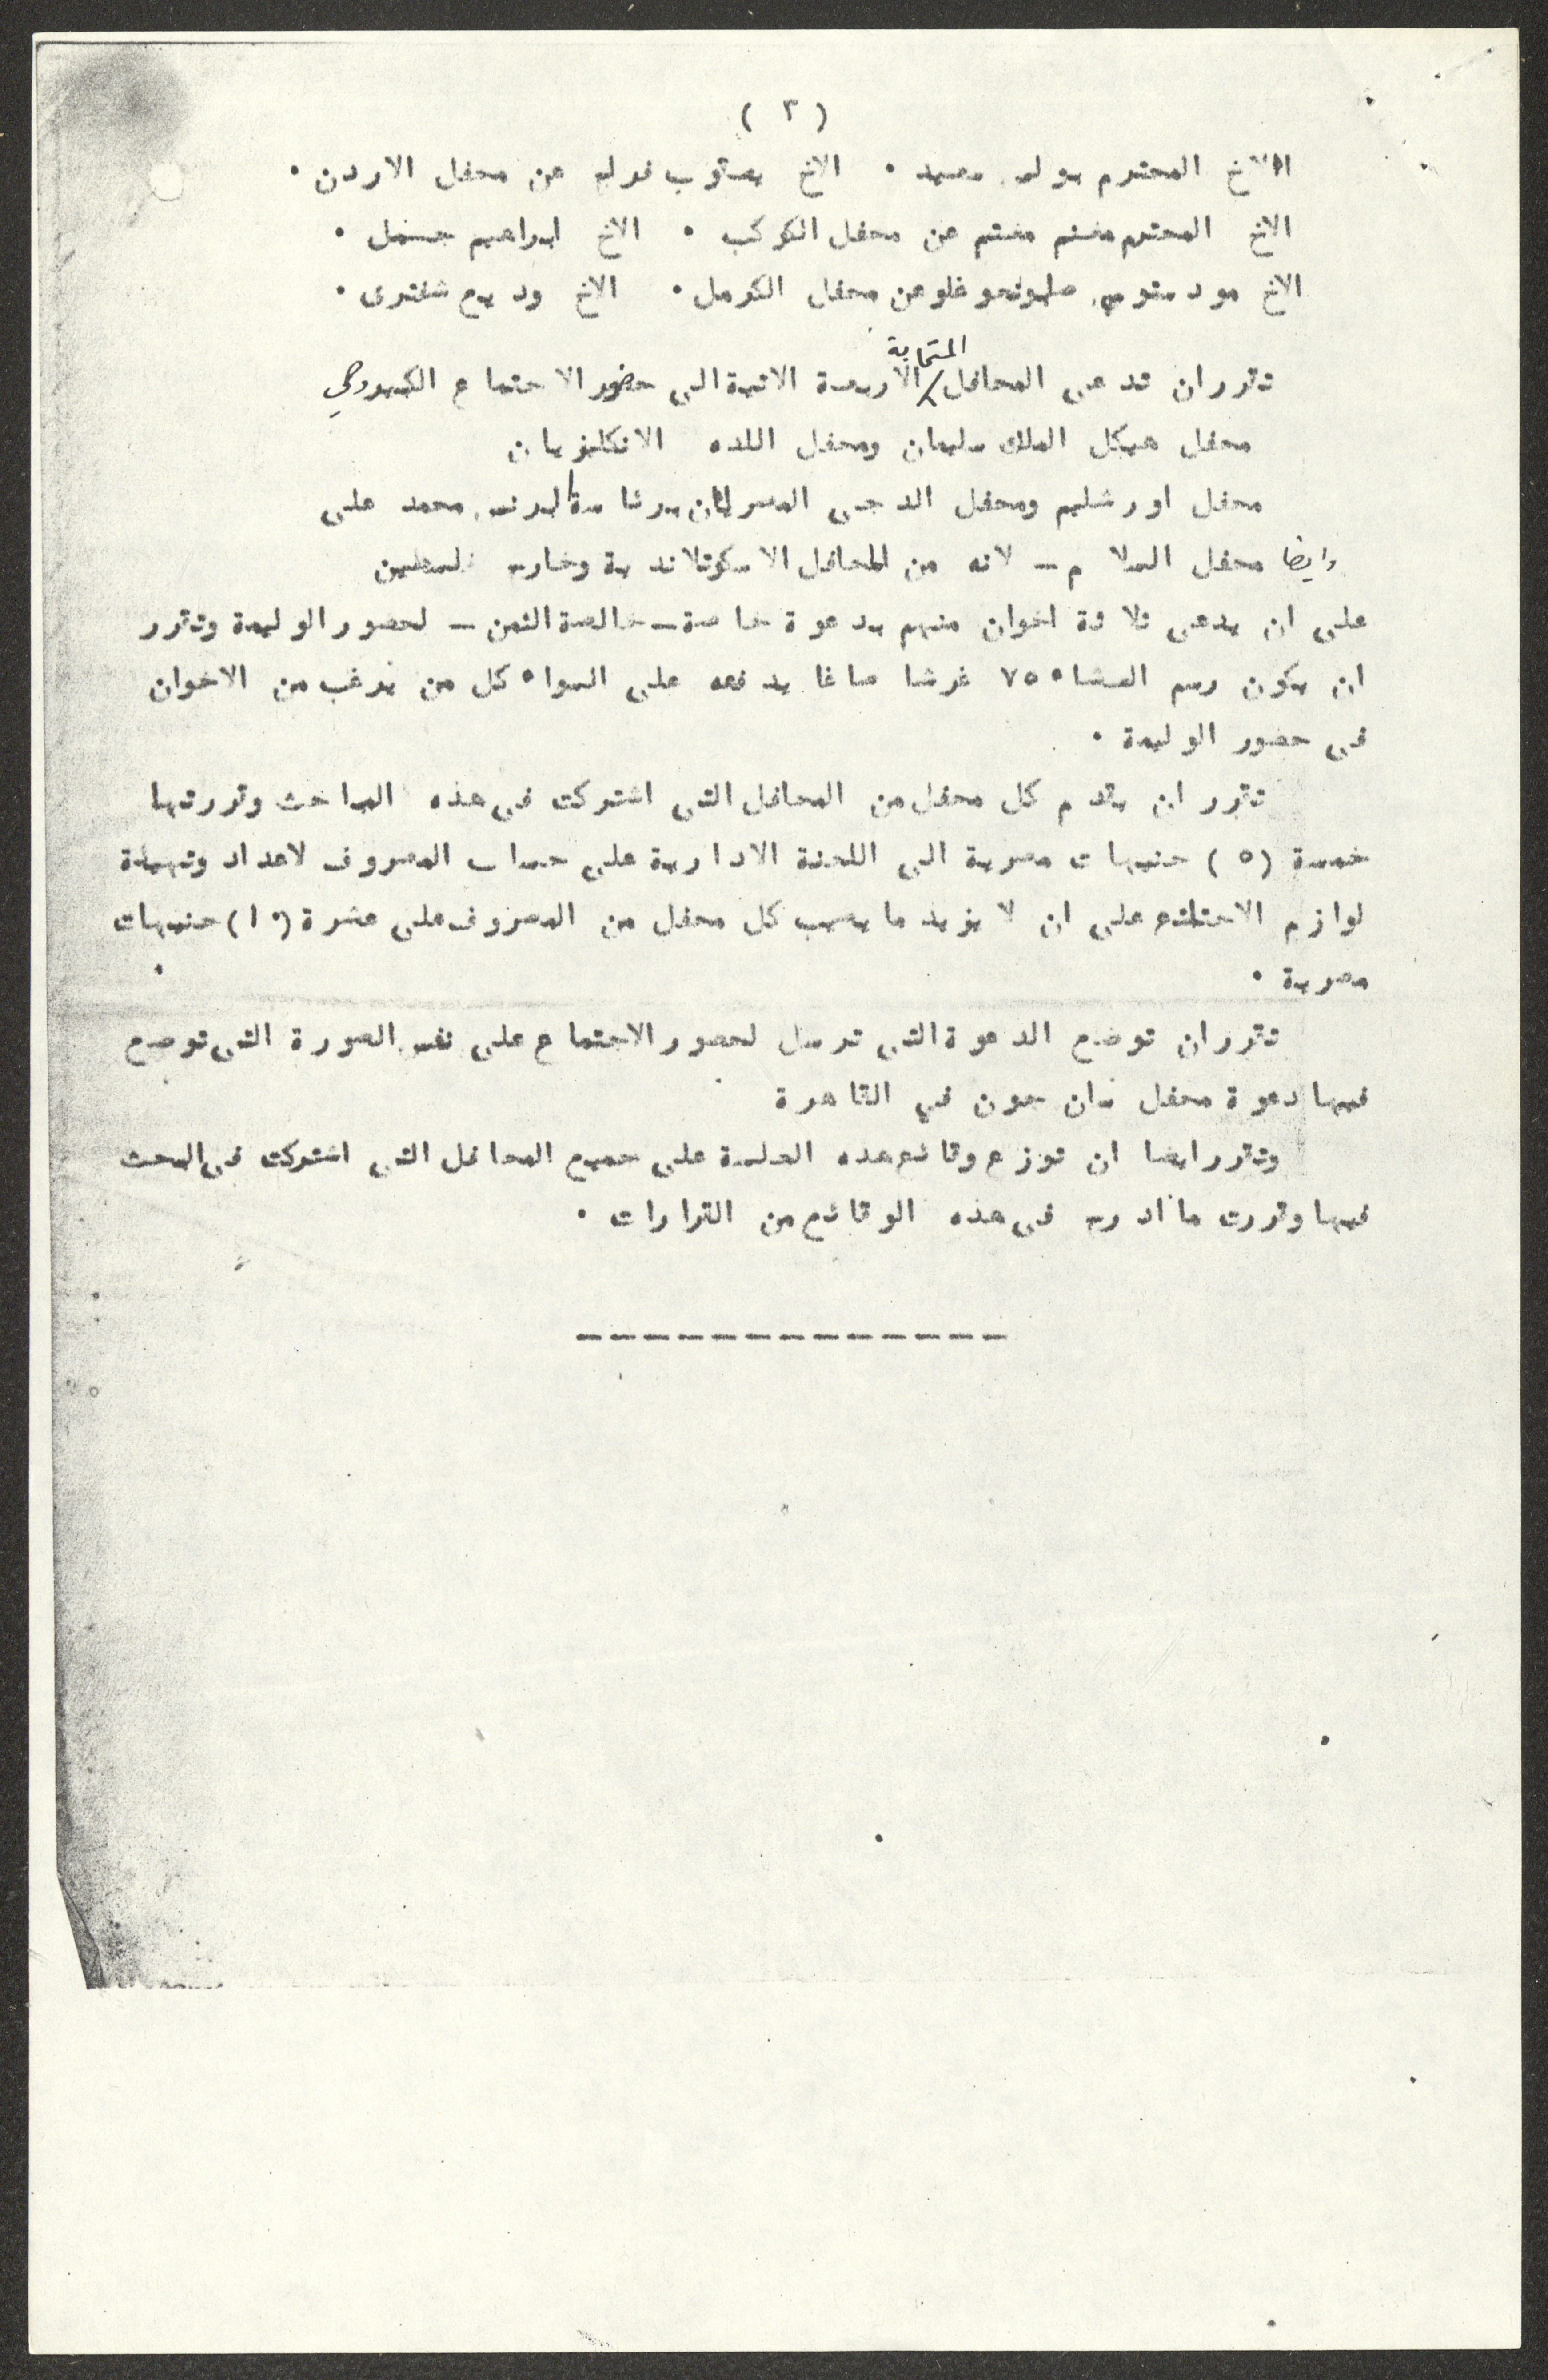 ( ٣ )
الاخ المحترم بولس سعيد ٠ الاخ يعقوب فوليه عن محفل الاردن ٠
الاخ المحترم مغنم مغنم عن محفل الكوكب ٠ الاخ ابراهيم جمل ٠
الاخ عن محفل الكرمل ٠ الاخ وديع شفترى ٠
تقرر ان تدعى المحافل المتحابة الاربعة الاتية الى حضور الاجتماع الكبير وهي
محفل هيكل الملك سليمان ومحفل اللده الانكليزيان
محفل اورشليم ومحفل الدجى المصريان برئاسة البرنس محمد على
وايضا محفل السلام ــ لانه من المحافل الاسكوتلاندية وخارج فلسطين
على ان يدعى ثلاثة اخوان منهم بدعوة خاصة ــ خالصة الثمن ــ لحضور الوليمة وتقرر
ان يكون رسم العشاء ٧٥ غرشا صاغا يدفعه على السواء كل من يرغب من الاخوان
فى حضور الوليمة ٠
تقرر ان يقدم كل محفل من المحافل التى اشتركت فى هذه المباحث وقررتها
خمسة (٥) جنيهات مصرية الى اللجنة الادارية على حساب المصروف لاعداد وتهيئة
لوازم الاجتماع على ان لا يزيد ما يصيب كل محفل من المصروف على عشرة (١٠) جنيهات
مصرية ٠
تقرر ان توضع الدعوة التى ترسل لحضور الاجتماع على نفس الصورة التى توضع
فيها دعوة محفل سان جون في القاهرة
وتقرر ايضا ان توزع وقائع هذه الجلسة على جميع المحافل التى اشتركت فى البحث
فيها وقررت ما ادرج فى هذه الوقائع من القرارات ٠